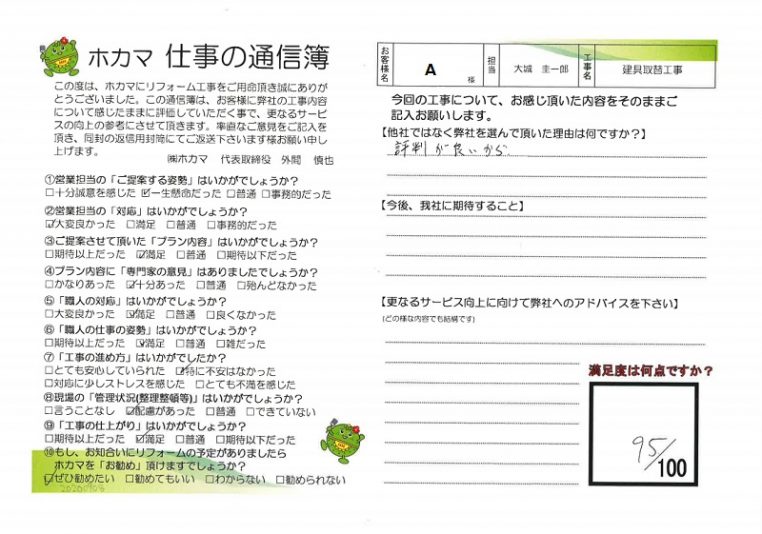 ホカマ 仕事の通信簿
この度は、ホカマにリフォーム工事をご用命頂き誠にありが
とうございました。この通信簿は、お客様に弊社の工事内容
について感じたままに評価していただく事で、更なるサービ
スの向上の参考にさせて頂きます。率直なご意見をご記入を
頂き、同封の返信用封筒にてご返送下さいます様お願い申し
上げます。
㈱ホカマ 代表取締役 外間 慎也
①営業担当の「ご提案する姿勢」はいかがでしょうか?
□十分誠意を感じた ☑一生懸命だった □普通 □事務的だった
②営業担当の「対応」はいかがでしょうか?
☑大変良かった □満足 □普通 □事務的だった
③ご提案させて頂いた「プラン内容」はいかがでしょうか?
□期待以上だった ☑満足 □普通 □期待以下だった
④プラン内容に「専門家の意見」はありましたでしょうか?
□かなりあった ☑十分あった □普通 □殆んどなかった
⑤「職人の対応」はいかがでしょうか?
□大変良かった ☑満足 □普通 □良くなかった
⑥「職人の仕事の姿勢」はいかがでしょうか?
□期待以上だった ☑満足 □普通 □雑だった
⑦「工事の進め方」はいかがでしたか?
□とても安心していられた ☑特に不安はなかった
□対応に少しストレスを感じた □とても不満を感じた
⑧現場の「管理状況(整理整頓等)」はいかがでしょうか?
□言うことなし ☑配慮があった □普通 □できていない
⑨「工事の仕上がり」はいかがでしょうか?
□期待以上だった ☑満足 □普通 □期待以下だった
⑩もし、お知合いにリフォームの予定がありましたら
ホカマを「お勧め」頂けますでしょうか?
☑ぜひ勧めたい □勧めてもいい □わからない □勧められない
お客様名 A 様 担当 大城 圭一郎 工事名 建具取替工事
今回の工事について、お感じ頂いた内容をそのままご
記入お願いします。
【他社ではなく弊社を選んで頂いた理由は何ですか?】
評判が良いから
【今後、我社に期待すること】
【更なるサービス向上に向けて弊社へのアドバイスを下さい】
(どの様な内容でも結構です)
満足度は何点ですか?
95/100